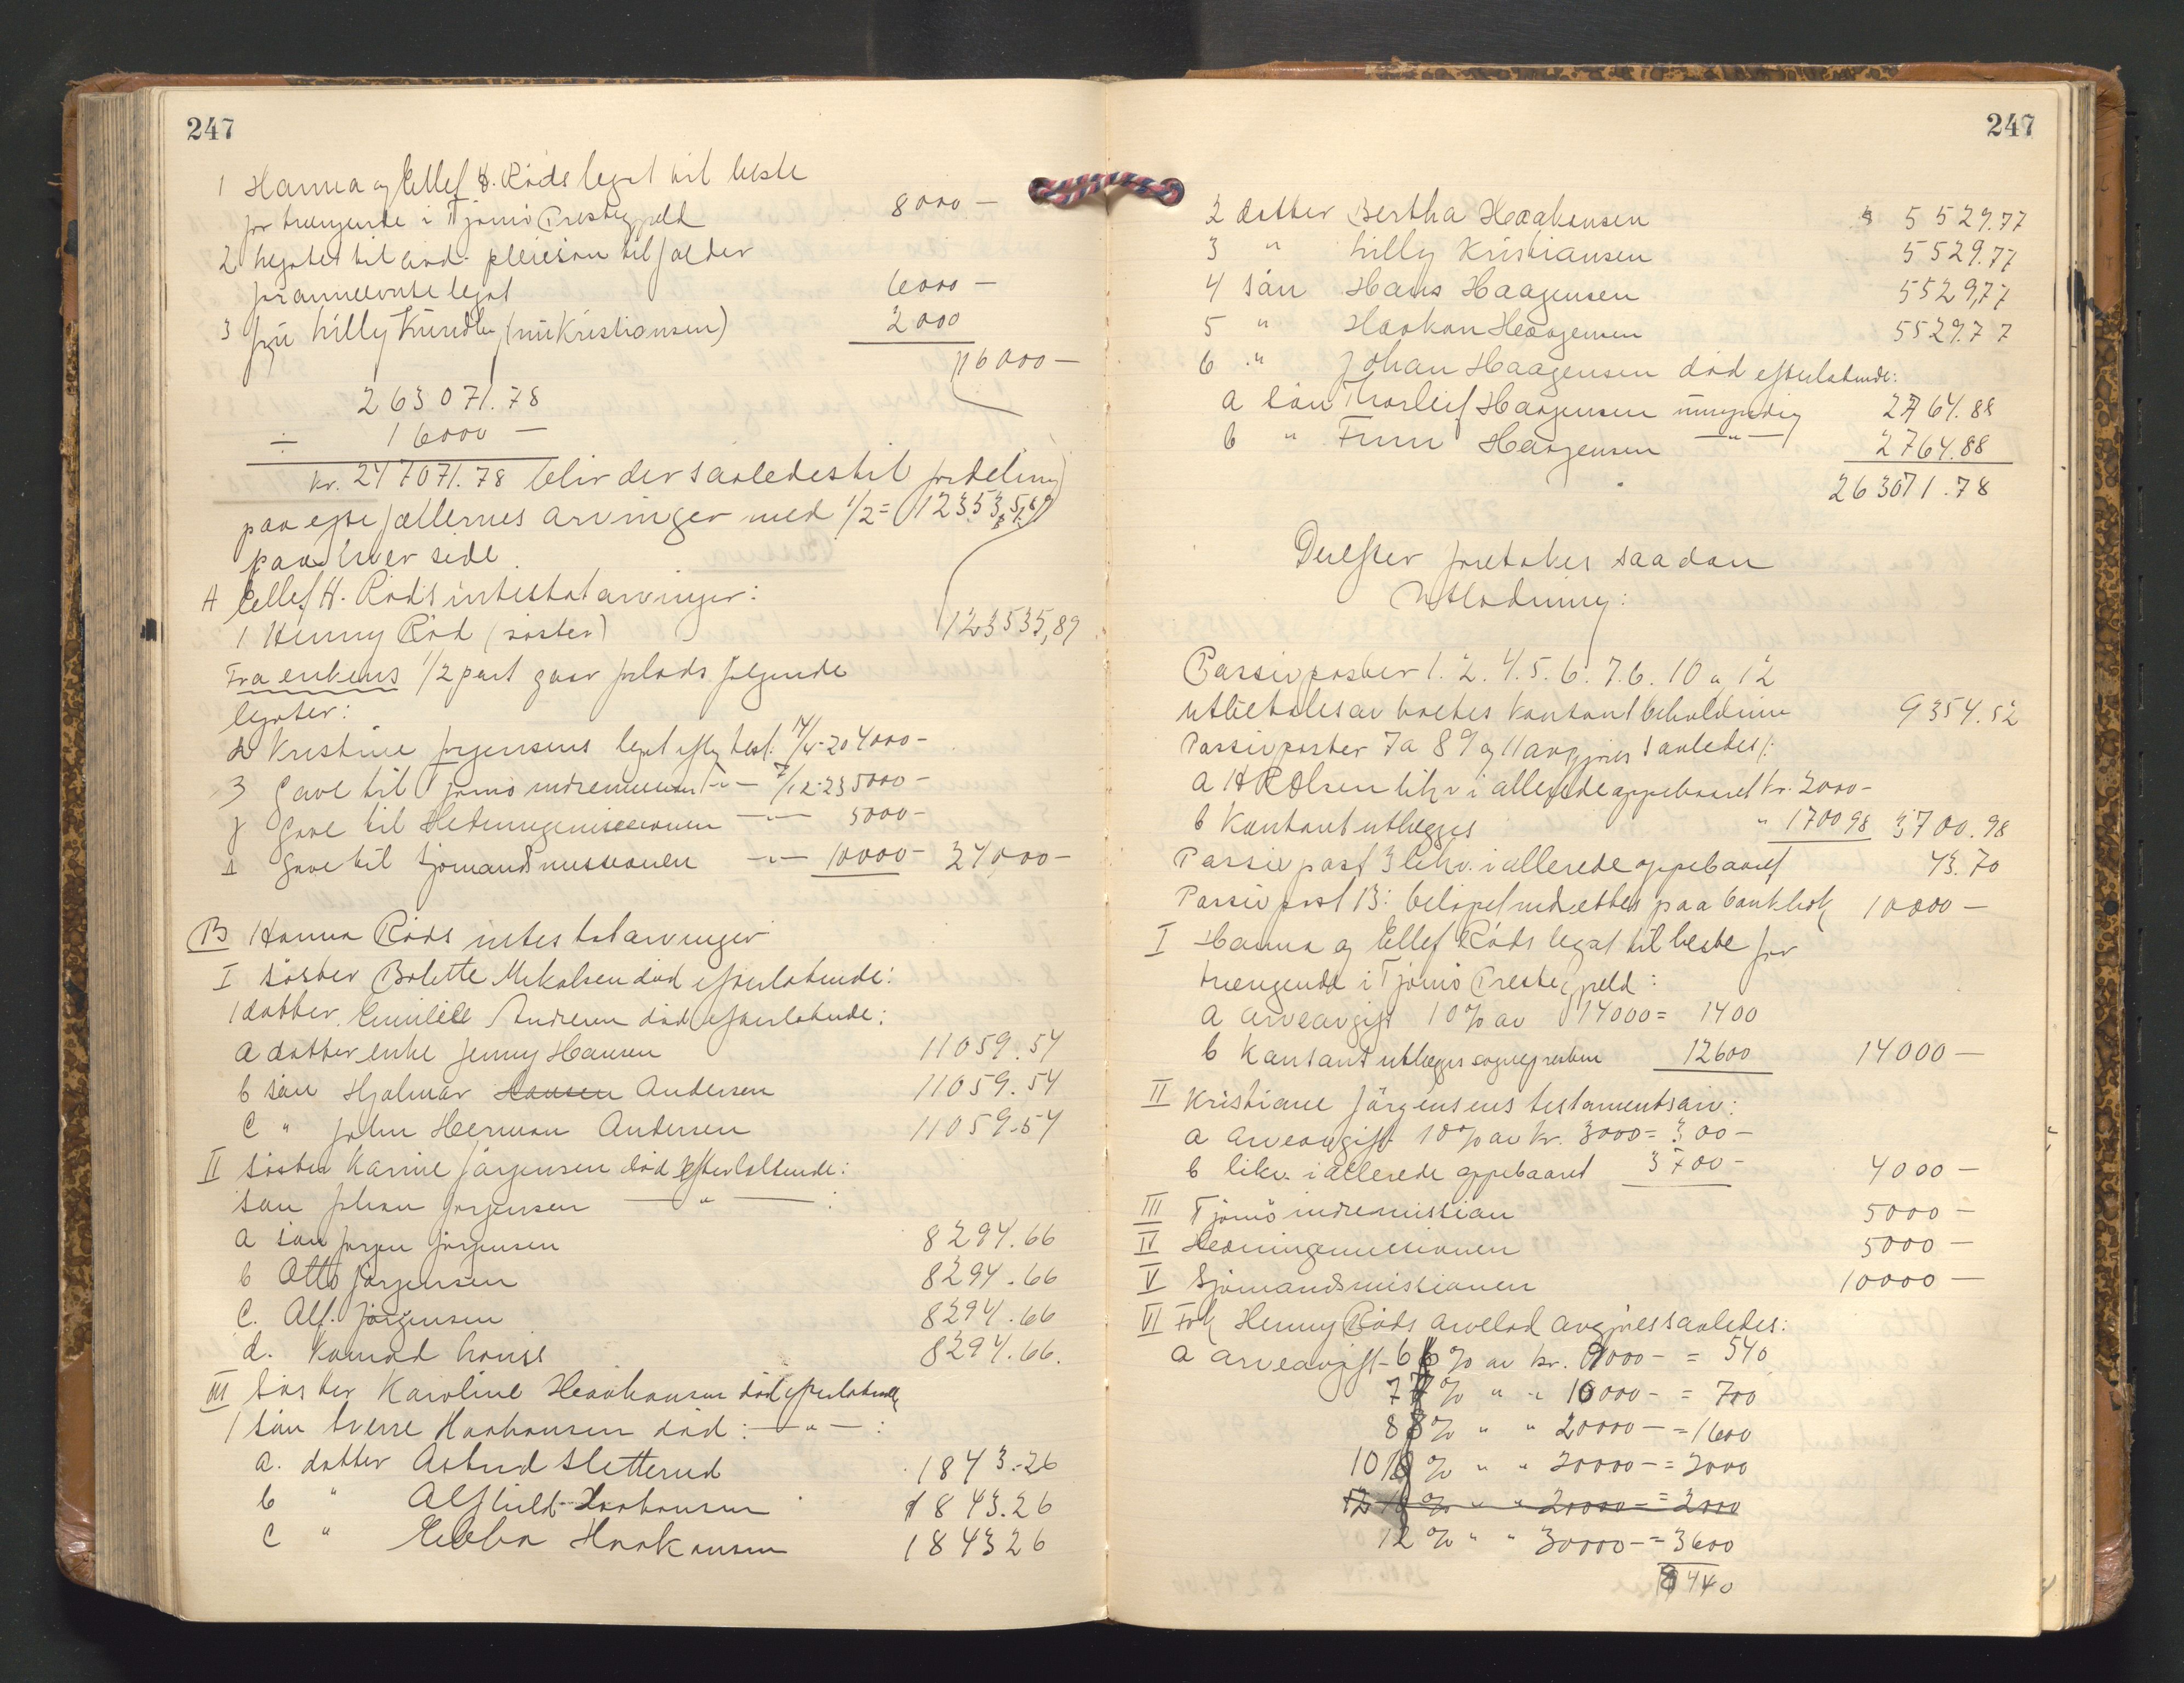 247
1 Hanna og Ellef H. Röds legat til beste
for trængende i Tjømø Prestegjeld 8000 —
2 legatet til avd. pleiesøn tilfalder
forannævnte legat 6000 —
3 Fru Lilly Kundby (nu Kristiansen) 2000
16000 —
263071.78
÷ 16000 —
kr. 247071.78 blir der saaledes til fordeling
paa egtefællernes arvinger med 1/2 = 123535,89
paa hver side.
A Ellef H. Röds intestatarvinger:
1 Henny Röd (söster) 123535,89
Fra enkens 1/2 part gaar forlods følgende
legater:
Kristine Jørgensens legat efter test. 14/4-20 4000 —
Gave til Tjømø indremission —"— 7/12-23 5000 —
Gave til Hedningemissionen —"— 5000 —
Gave til Sjømandsmissionen —"— 10000 — 24000 —
B Hanna Röds intestatarvinger
I söster Bolette Mikalsen död efterlatende:
1 datter Emilie Andersen död efterlatende:
a datter enke Jenny Hansen 11059.54
b sön Hjalmar Hansen Andersen 11059.54
c " John Herman Andersen 11059.54
II Söster Karine Jörgensen död efterlatende:
sön Johan Jörgensen —"— :
a sön Jörgen Jörgensen 8294.66
b Otto Jörgensen 8294.66
c. Alf. Jörgensen 8294.66
d. Konrad 8294.66.
III Söster Karoline Haakonsen död efterlatende
1 sön Sverre Haakonsen död: —"— :
a. datter Astrid Sletterød 1843.26
b " Alfhild Haakonsen 1843.26
c " Ebba Haakonsen 1843 26
247
2 datter Bertha Haakonsen 5529.77
3 " Lilly Kristiansen 5529.77
4 sön Hans Haagensen 5529,77
5 " Haakon Haagensen 5529.77
6 " Johan Haagensen död efterlatende:
a sön Thorleif Haagensen umyndig 2764.88
b " Finn Haagensen —"— 2764.88
263071.78
Derefter foretokes saadan
Utlodning:
Passivposter 1. 2. 4. 5. 6. 7.b. 10 og 12
utbetales av boets kontantbeholdning 9354.52
Passivposter 7a 8 9 og 11 avgjöres saaledes:
a H R Olsen likv. i allerede oppebaaret kr. 2000 —
b Kontant utlægges " 1700 98 3700.98
Passiv post 3 likv. i allerede oppebaaret 43.70
Passiv post 13: belöpet indsættes paa bankbok 10000 —
I Hanna og Ellef Röds legat til beste for
trængende i Tjømø Prestegjeld:
a arveavgift 10% av 14000 = 1400
b Kontant utlægges sognepresten 12600 14000 —
II Kristiane Jörgensens testamentsarv:
a arveavgift 10% av kr. 3000 = 300 —
b likv. i allerede oppebaaret 3700 — 4000 —
III Tjømø indremission 5000 —
IV Hedningemissionen 5000 —
V Sjömandsmissionen 10000 —
VI Frk Henny Röds arvelod avgjöres saaledes:
a arveavgift 6% av kr. 9000 — = 540
7% " " 10000 — = 700
8% " " 20000 — = 1600
10% " " 20000 — = 2000
12 % " " 20000 — = 2000
12% " " 30000 — = 3600
8440